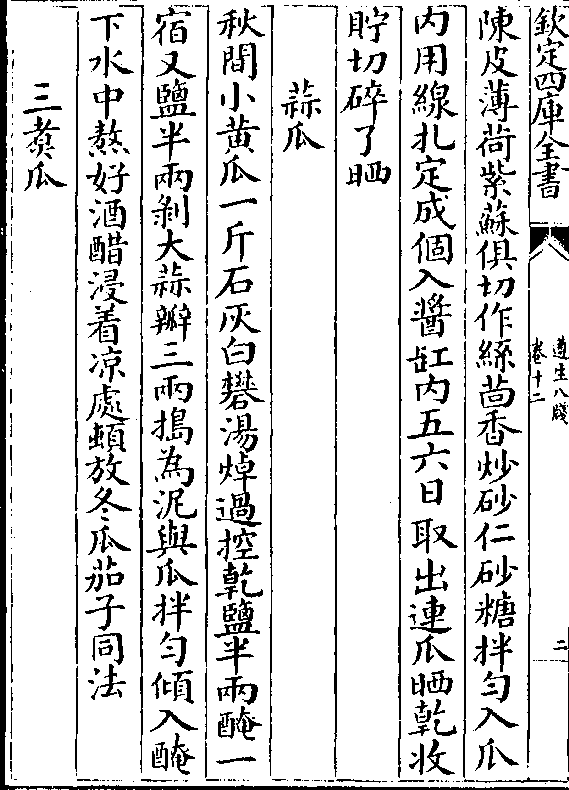 欽定四庫全書
遵生八牋
卷十二
二
陳皮薄荷紫蘇俱切作絲茴香炒砂仁砂糖拌匀入瓜
内用線扎定成個入醬缸内五六日取出連瓜晒乾收
貯切碎了晒
蒜瓜
秋間小黄瓜一斤石灰白礬湯焯過控乾鹽半兩醃一
宿又鹽半兩剥大蒜瓣三兩搗為泥與瓜拌匀傾入醃
下水中熬好酒醋浸着凉處頓放冬瓜茄子同法
三煑瓜